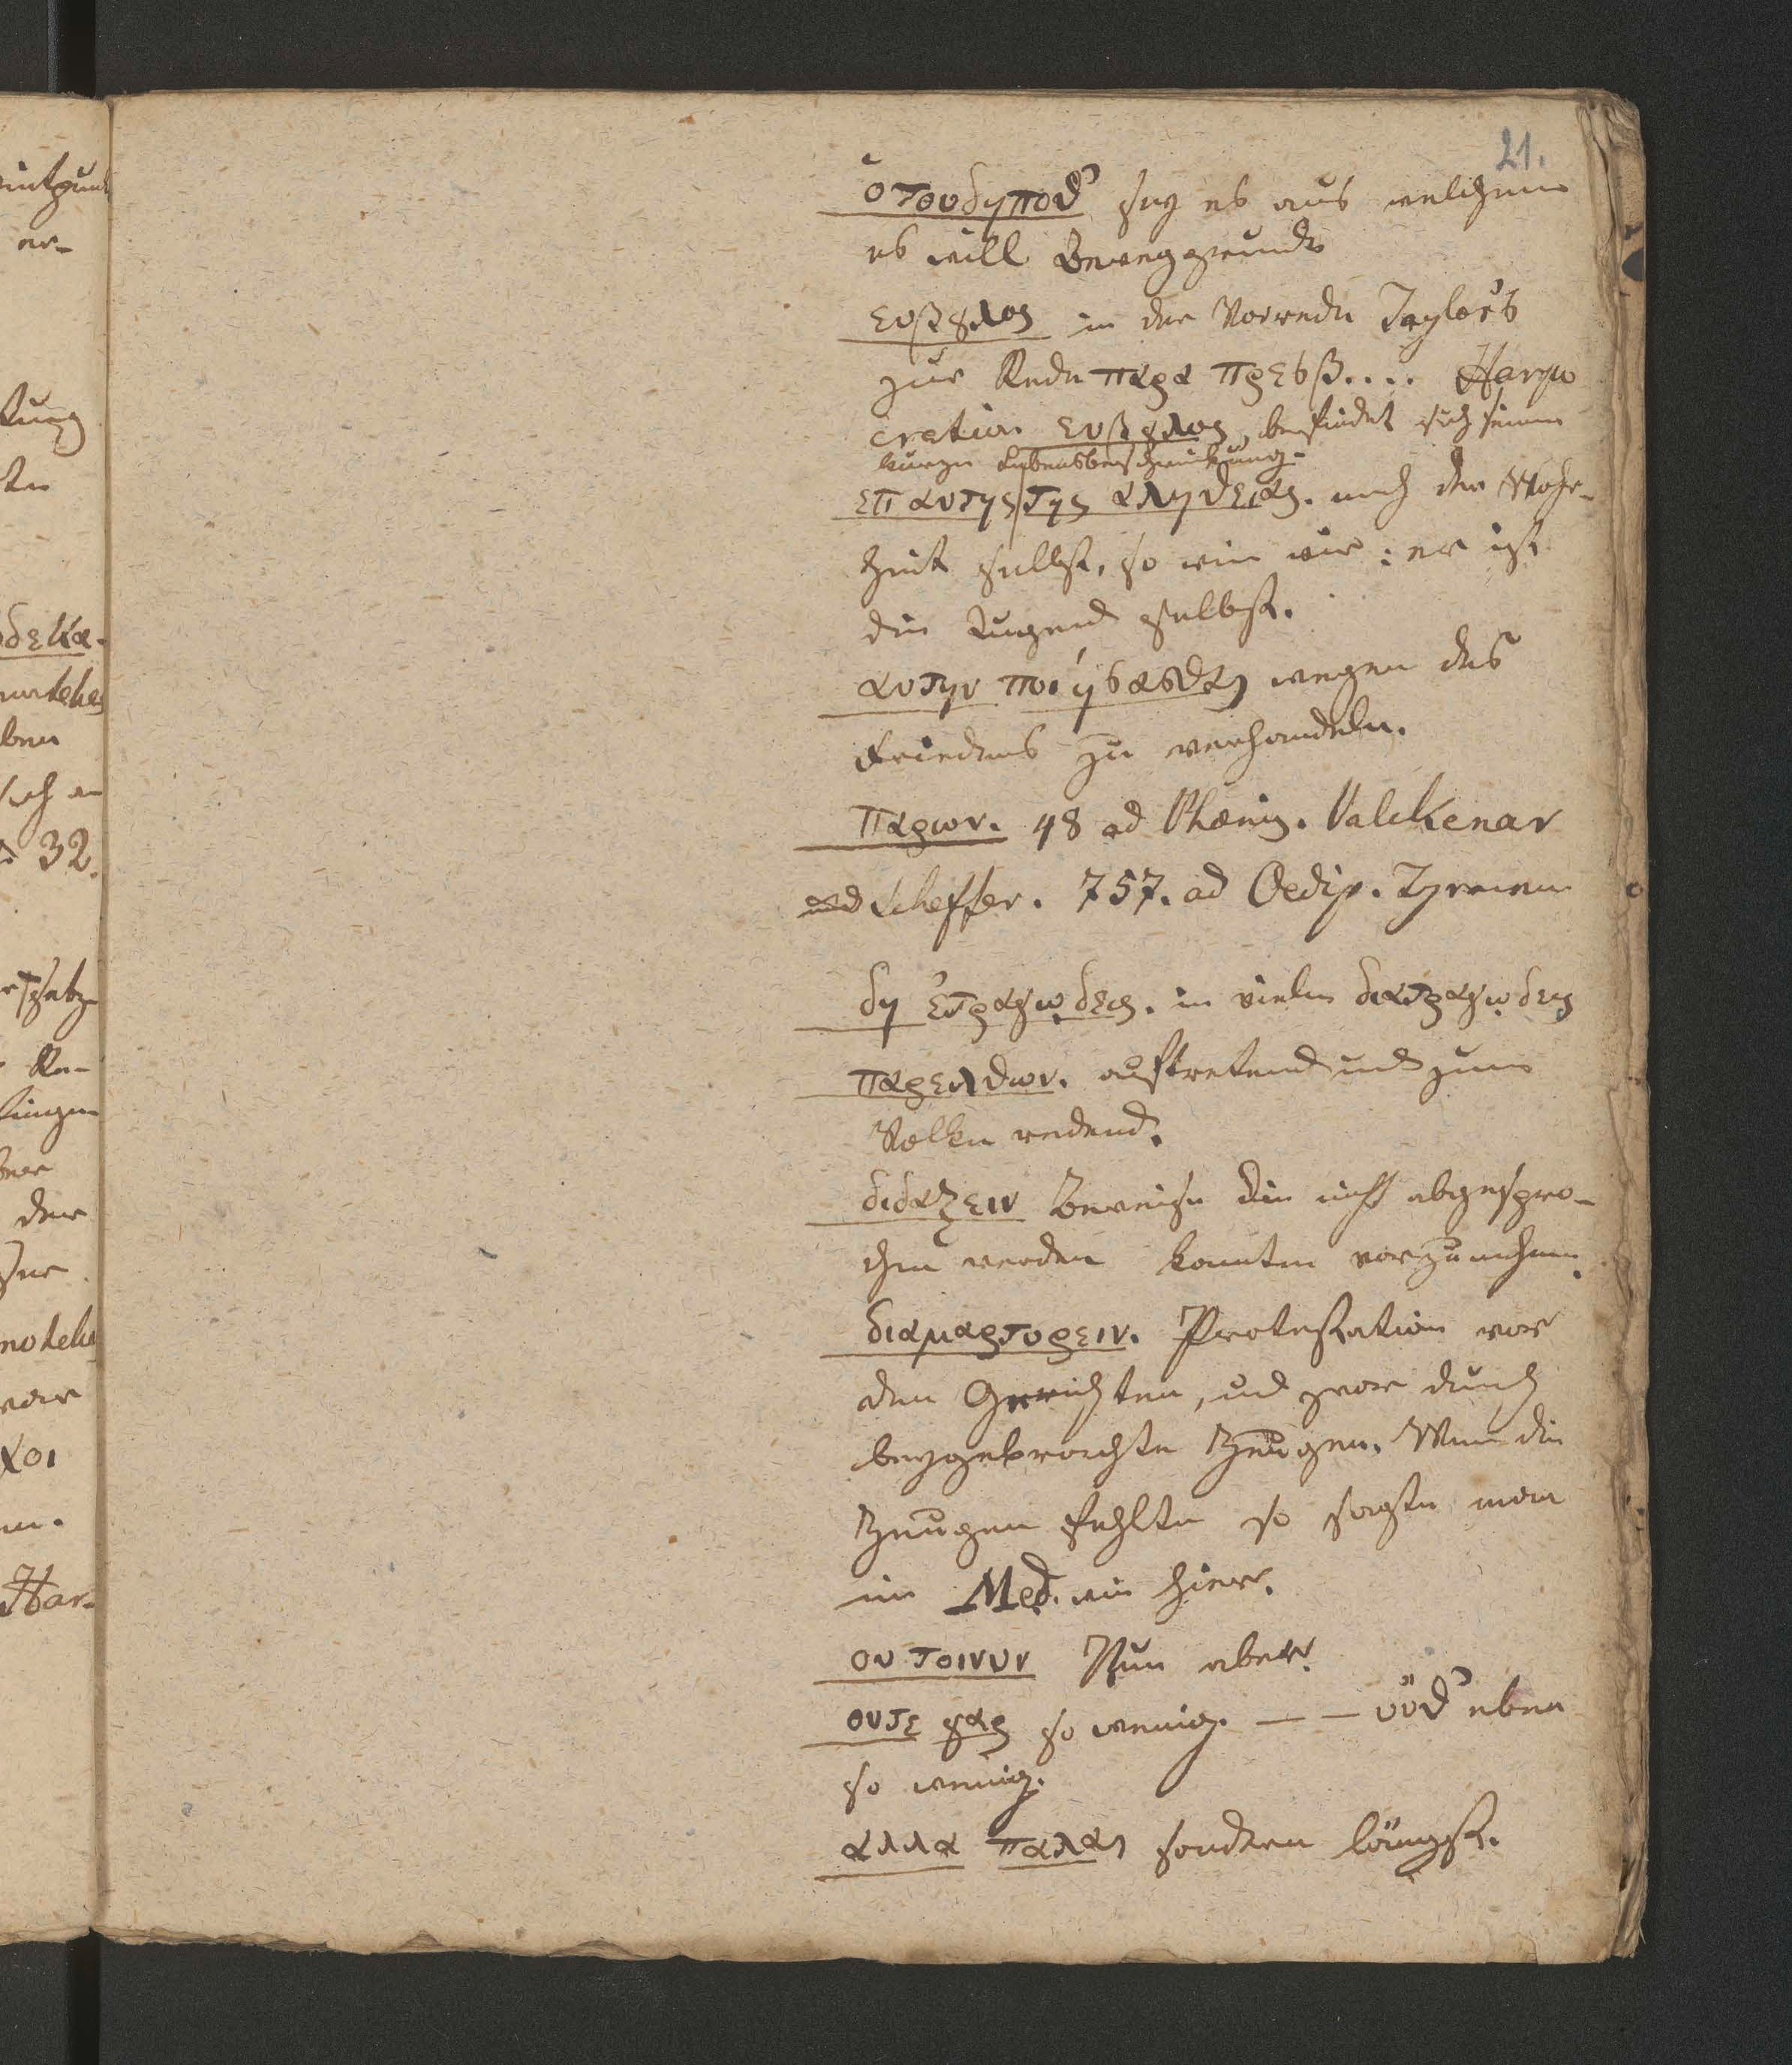 21.
ὁτουδηποθ' sey es aus welchem
es will Beweggrunde
Ευβȣλος in der Vorrede Taylor's
zur Rede παρα πρεσβ.... Harpo
cration Ευβȣλος, befindet sich seine
kurze Lebensbeschreibung.
επ αυτης|της αληθειας. nach der Wahr-
heit selbst, so wie wir: er ist
die Tugend selbst.
αυτην ποιήσασθαι wegen des
Friedens zu verhandeln.
παρων. 48 ad Phœnis. Valckenar
und Scheffer. 757. ad Oedip. Tyrann
δη ἐτραγῳδεις. in vielen διατραγῳδεις
παρελθων. auftretend und zum
Volke redend.
διδαξειν Beweise die nicht abgespro-
chen werden konnten vorzunehmen.
διαμαρτυρειν. Protestation vor
den Gerichten, und zwar durch
beygebrachte Zeugen. Wenn die
Zeugen fehlten so sagte man
im Med. wie hier.
ου τοινυν Nun aber.
ουτε γαρ so wenig. — — οὐθ' eben
so wenig.
αλλα παλαι sondern längst.
32.
er-
δεκα.
ben
der
Har-